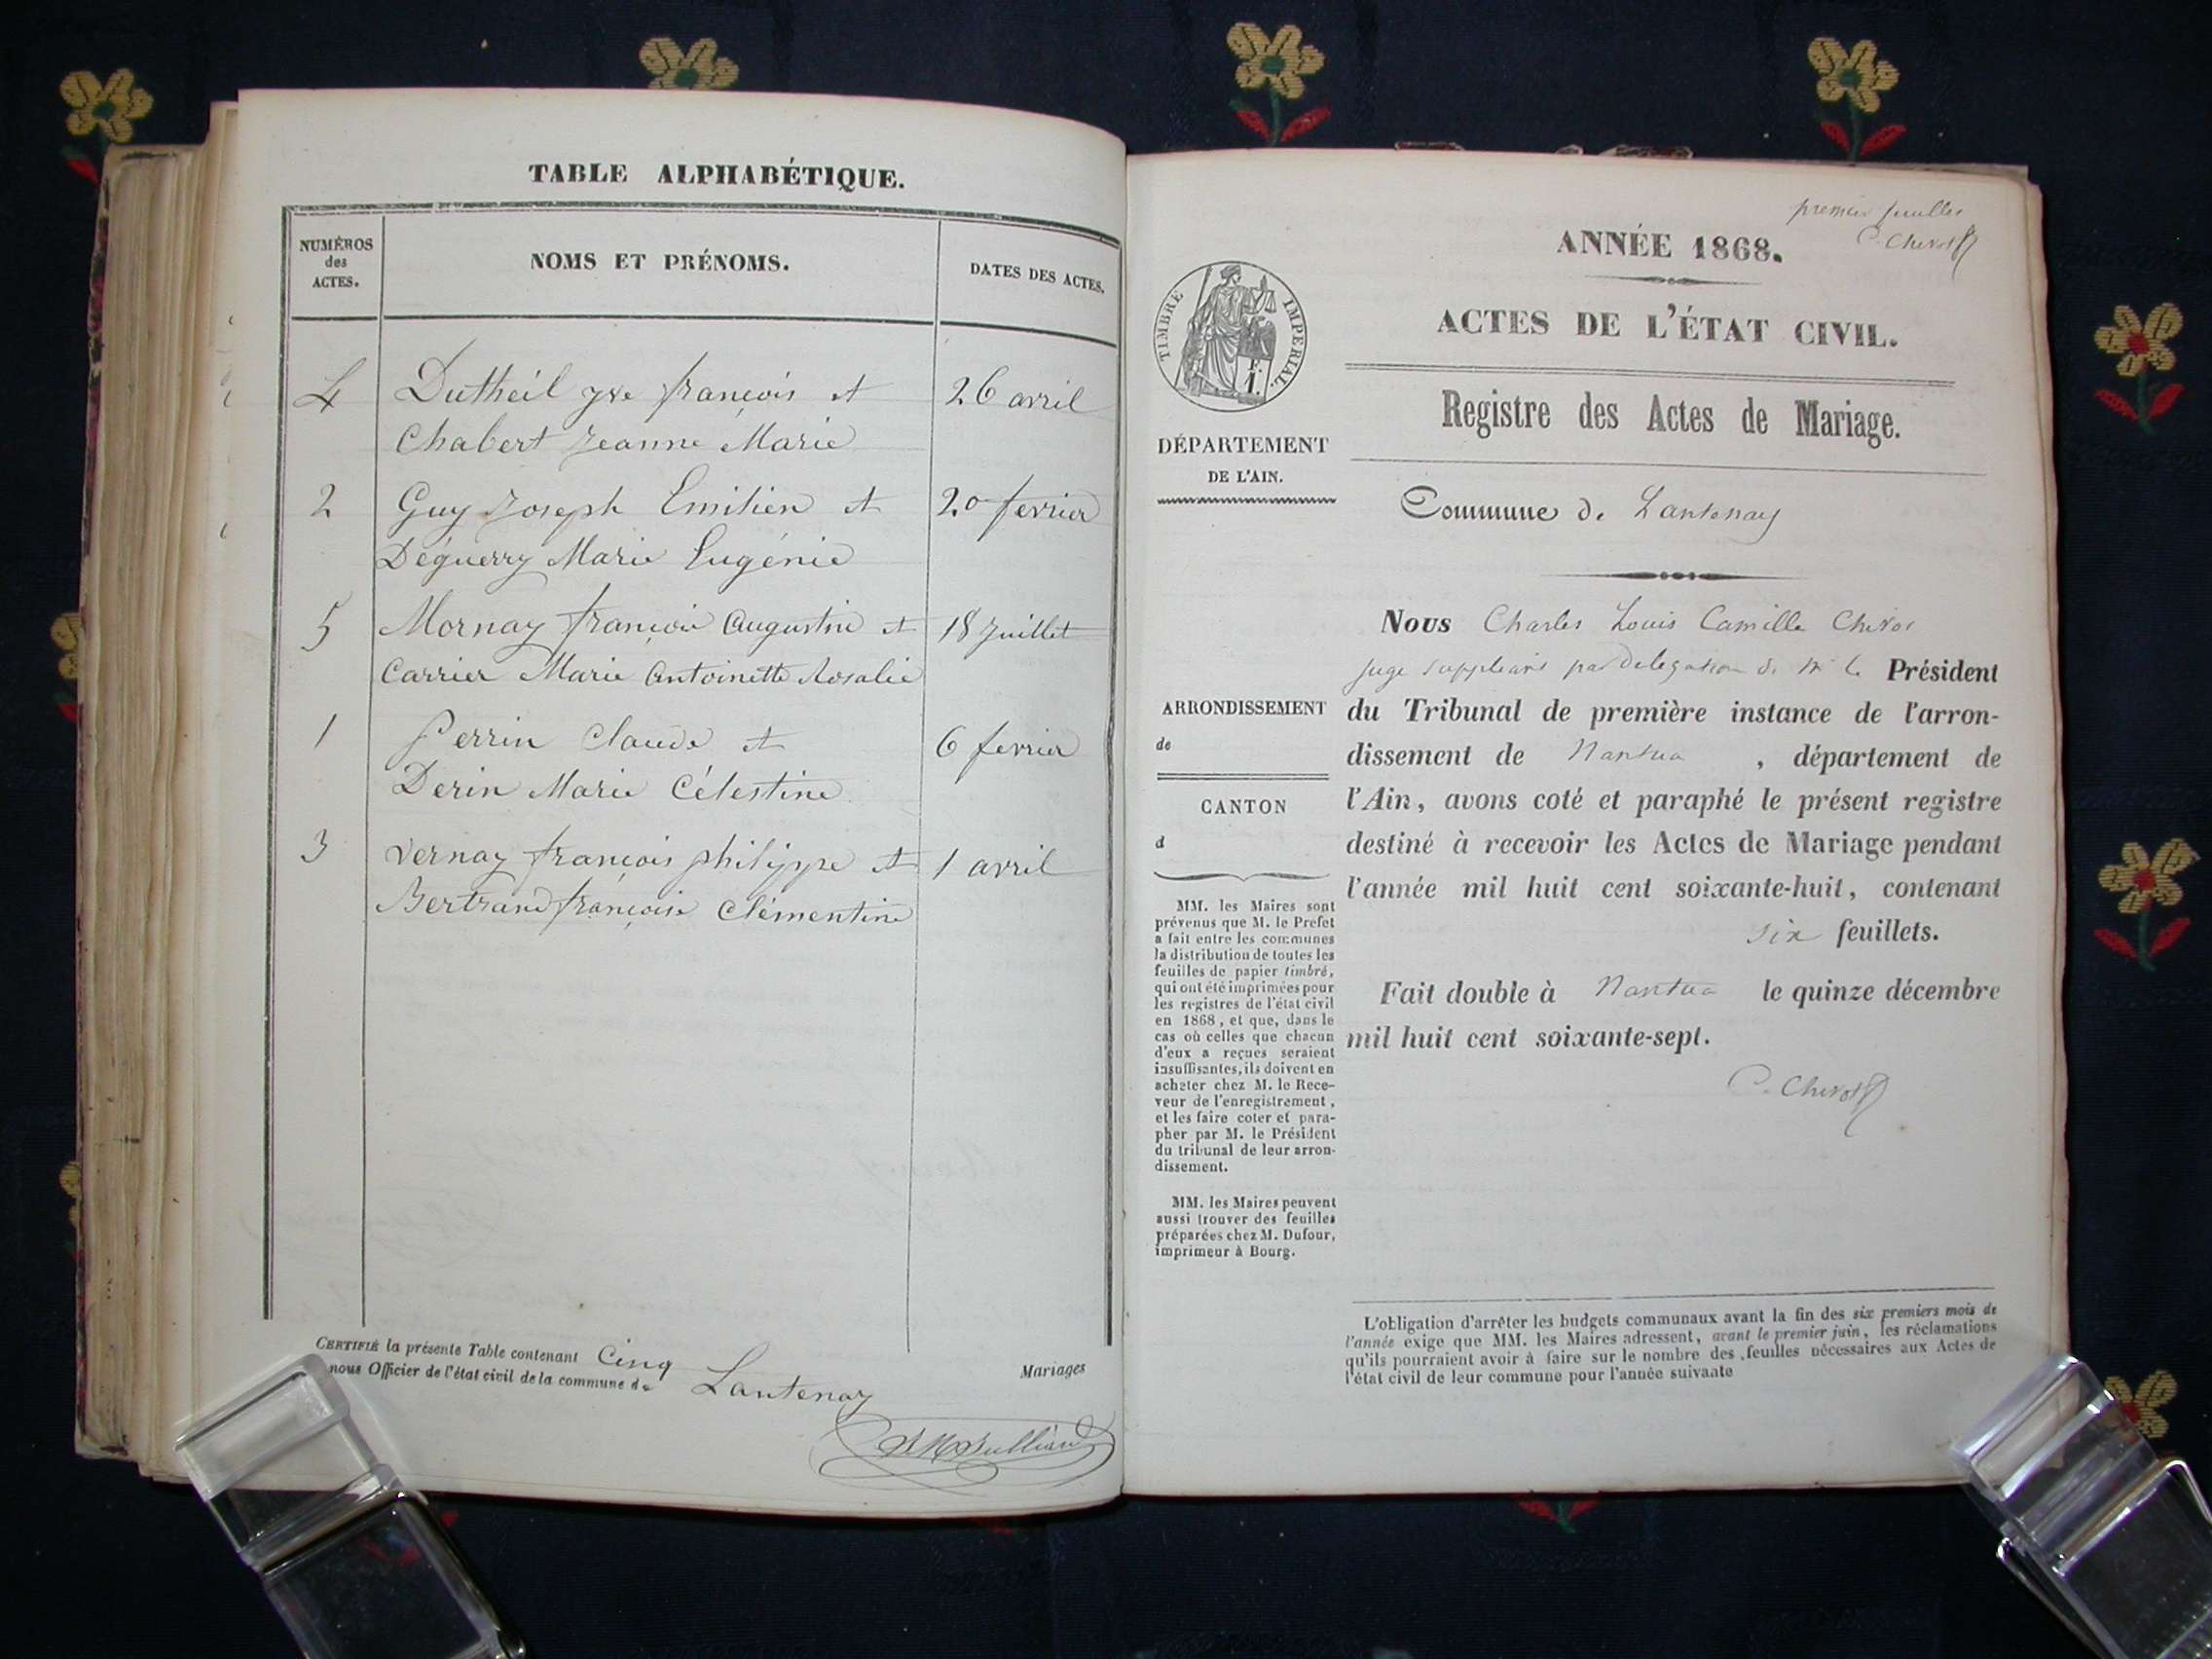 TABLE ALPHABÉTIQUE.
NUMÉROS
des
ACTES.
NOMS ET PRÉNOMS.
DATES DES ACTES.
4 Dutheil françois et 26 avril
Chabert Jeanne Marie
2 Guy Joseph Emilien et 20 fevrier
Déguerry Marie Eugénie
5 Mornay françois Augustin et 18 Juillet
Carrier Marie Antoinette Rosalie
1 Perrin Claude et 6 fevrier
Derin Marie Célestine
3 Vernay françois philippe et 1 avril
Bertrand françoise Clémentine
CERTIFIÉ la présente Table contenant Cinq Mariages
nous Officier de l'état civil de la commune de Lantenay
premier feuillet
C. Chevot
ANNÉE 1868.
ACTES DE L'ÉTAT CIVIL.
Registre des Actes de Mariage.
TIMBRE IMPÉRIAL.
F.
1.
DÉPARTEMENT
DE L'AIN.
Commune de Lantenay
Nous Charles Louis Camille
juge suppléant par delegation de Mr le Président
du Tribunal de première instance de l'arron-
dissement de Nantua , département de
l'Ain, avons coté et paraphé le présent registre
destiné à recevoir les Actes de Mariage pendant
l'année mil huit cent soixante-huit, contenant
six feuillets.
Fait double à Nantua le quinze décembre
mil huit cent soixante-sept.
C. Chevot
ARRONDISSEMENT
de
CANTON
d
MM. les Maires sont
prévenus que M. le Prefet
a fait entre les communes
la distribution de toutes les
feuilles de papier timbré,
qui ont été imprimées pour
les registres de l'état civil
en 1868, et que, dans le
cas où celles que chacun
d'eux a reçues seraient
insuffisantes, ils doivent en
acheter chez M. le Rece-
veur de l'enregistrement,
et les faire coter et para-
pher par M. le Président
du tribunal de leur arron-
dissement.
MM. les Maires peuvent
aussi trouver des feuilles
préparées chez M. Dufour,
imprimeur à Bourg.
L'obligation d'arrêter les budgets communaux avant la fin des six premiers mois de
l'année exige que MM. les Maires adressent, avant le premier juin, les réclamations
qu'ils pourraient avoir à faire sur le nombre des feuilles nécessaires aux Actes de
l'état civil de leur commune pour l'année suivante